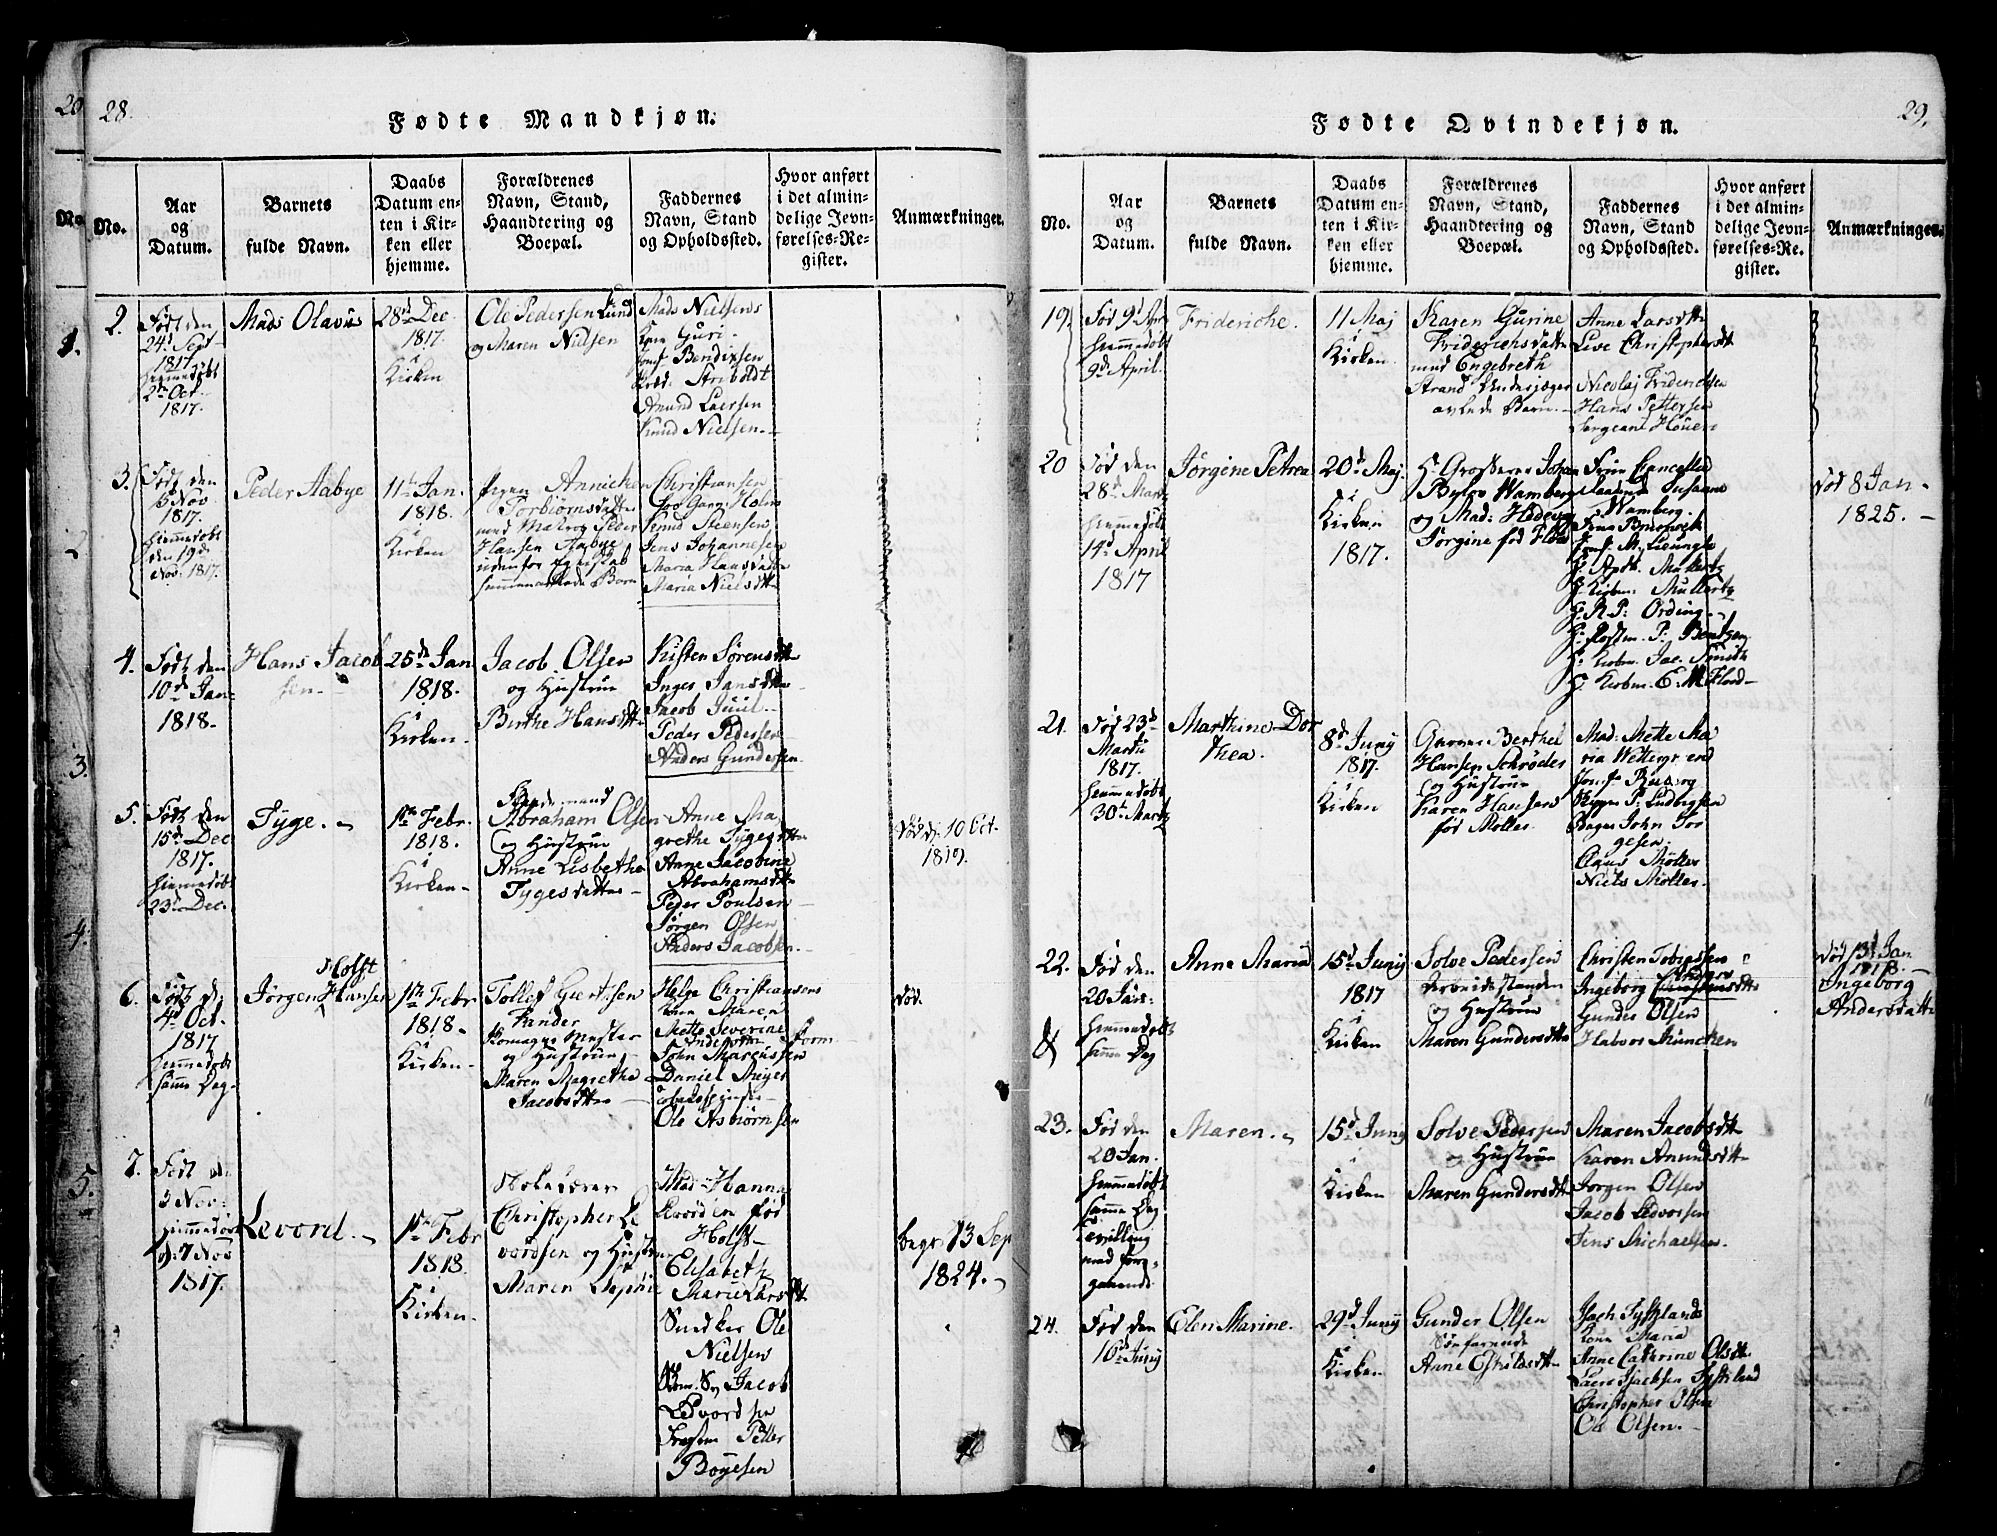 28.
Fødte Mandkjøn.
No.
Aar
og
Datum.
Barnets
fulde Navn.
Daabs
Datum en-
ten i Kir-
ken eller
hjemme.
Forældrenes
Navn, Stand,
Haandtering og
Boepæl.
Faddernes
Navn, Stand
og Opholdssted.
Hvor anført
i det almin-
delige Jevn-
førelses-Re-
gister.
Anmærkninger.
2.
Født den
24d Sept
1817
hiemmedøbt
2den Oct.
1817.
Mads Olavus
28d Dec.
1817.
i
Kirken
Ole Pedersen Lund
og Maren Nielsen
Mads Nielsens
Kone Guri
Bendixsen
Striboldt
Amund Larsen
Knud Nielsen
3.
Født den
5 Nov
1817.
hiemmedøbt
den 19de
Nov: 1817.
Peder Aabye
11t Jan.
1818.
i
Kirken
Pigen Annichen
Torbiørnsdatter
med Matros Peder
Hansen Aabye
udenfor Ægteskab
sammenavlede Barn
Christiansen
Holm
Knud Steensen
Jens Johannesen
Maria Hansdatter
Maria Nielsdtr
4.
Født den
10d Jan-
1818-
Hans Jacob
sen
25d Jan
1818.
i
Kirken
Jacob Olsen
og Hustrue
Birthe Hansdtr
Kisten Sørensdtr
Inger Jansdtr
Jacob Juul
Peder Pedersen
Anders Gundersen
5.
Født den
15d Dec
1817.
hiemmedøbt
23d Dec.
Tyge.
1ste Febr.
1818.
i
Kirken
Abraham Olsen
og Hustrue
Anne Lisbethe
Tygesdatter
Anne Ma
grethe Tygesdtr
Anne Jacobine
Abrahamsdtr
Peder Poulsen
Jørgen Olsen
Anders Jacobsen
Død d: 10 Oct.
1819.
6.
Født d.
4d Oct.
1817
hiemmedøbt
samme Dag
Holst
Jørgen Hansen
1ste Febr
1818
i
Kirken
Tollef Giertsen
og Hustrue
Maren Magrethe
Jacobsdtr
Helge Christiansens
Kone Maren
Mette Severine
John Marcussen
Daniel Meyer
Ole Asbiørnsen
Død.
7.
Født d.
3 Nov
hiemmedøbt
d: 7 Nov
1817.
Levord.
1ste Febr
1818.
i
Kirken
Skolelærer
Christopher Le
vordsen og Hustrue
Maren Sophie
Mad: Hanna
Levordsen fød
Holst
Elisabeth
Marie Larsdtr
Snedker Ole
Nielsen
Jacob
Levordsen
Peder
Boyesen
begr. 13 Sep
1824.
29.
Fødte Qvindekjøn.
No.
Aar
og
Datum.
Barnets
fulde Navn.
Daabs
Datum en-
ten i Kir-
ken eller
hiemme.
Forældrenes
Navn, Stand,
Haandtering og
Boepæl.
Faddernes
Navn, Stand
og Opholdssted.
Hvor anført
i det almin-
delige Jevn-
førelses-Re-
gister.
Anmærkninger.
19.
Fød 9d Apr
hiemmedøbt
9d April.
Frideriche.
11 Maj
i
Kirken
Karen Gurine
Friderichsdatter
med Engebreth
Strand Underjæger
avlede Barn.
Anne Larsdtr
Live Christophersdtr
Nicolaj Fridericksen
Hans Pettersen
Sergeant Houen
20
Fød den
28d Martz
hiemmedøbt
14d April
1817
Jørgine Petrea
20d Maj.
i
Kirken
1817.
Hr Grosserer Johan
Bylov Wamberg
og Mad: Hedevig
Jørgine fød Flood
Frue Cancellie
raadinde Susanne
Wamberg.
H. Apoth. Mullertz
H. Kiøbm: Mullertz
H. R. P: Ording
H. Postm. P. Bentzen
H. Kiøbm. Jac. Smith
H. Kiøbm. E. M. Flood
Død 8 Jan
1825.
21.
Fød 23d
Martii
1817.
hiemmedøbt
30t Martz
Marthine Dor
thea.
8d Junij
1817.
i
Kirken
Garver Berthel
Hansen Schrøder
og Hustrue
Karen Hansen
fød Møller
Mad: Mette Ma
ria Wettergreen
Skipper P. Ludvigsen
Bager John Jor
gesen
Claus Møller
Niels Møller
22.
Fød den
20 Jan:
hiemmedøbt
samme Dag
Anne Maria
15d Junij
1817
i
Kirken
Solve Pedersen
Arbeidsmanden
og Hustrue
Maren Gundersdtr
Christen Tobiassen
Ingeborg
Gunder Olsen
Halvor Munchen
Død 13d Jan
1818.
Ingeborg
Andersdatter
23.
Fød den
20 Jan.
hiemmedøbt
samme Dag
tvilling
med fore-
gaaende
Maren.
15d Junij
i
Kirken
Solve Pedersen
og Hustrue
Maren Gundersdtr
Maren Jacobsdtr
Karen Amundsdtr
Jorgen Olsen
Jacob Ledvorsen
Jens Michaelsen
24.
Fød den
16d Junij
Elen Marine.
29d Junij
i
Kirken
Gunder Olsen
Søefarende
Anne Eskildsdtr
Isach Tyskland
Kone Maria
Anne Cathrine Olsdtr
Lars Isachsen Tyskland
Christopher Olsen
Ole Olsen.